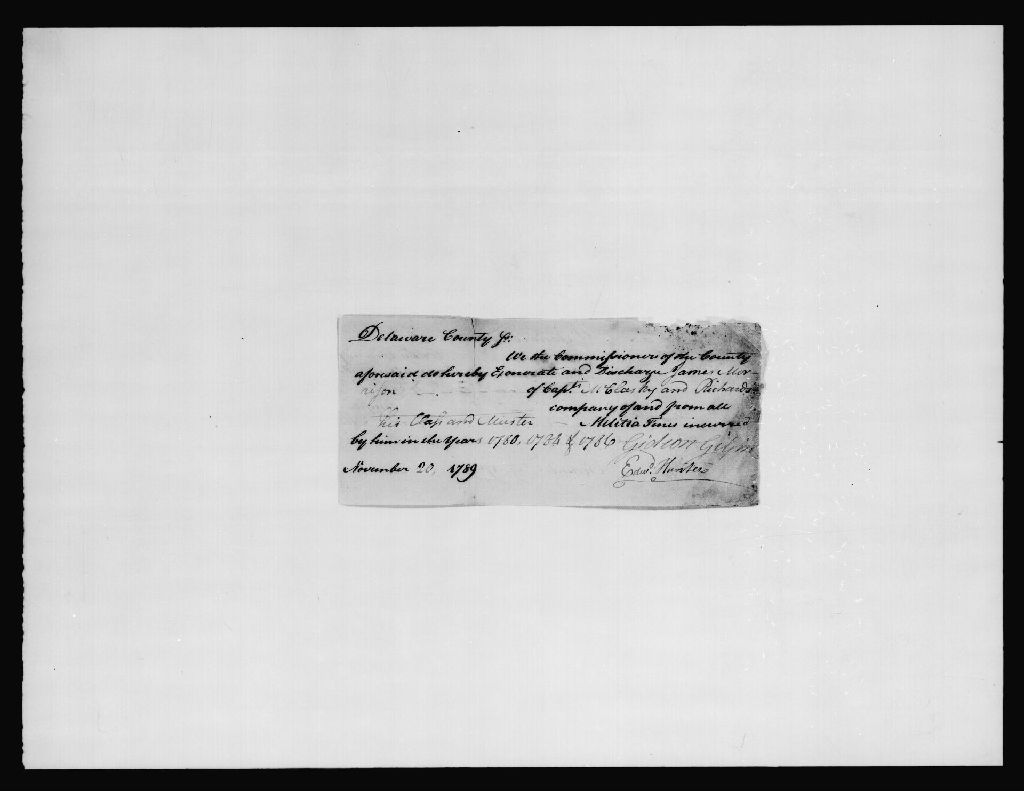 Delaware County Ss:
We the Commissioners of the County
aforesaid do hereby Exonerate and Discharge James Mor-
rison of Capt. McClasky and Richards
company of and from all
his Class and Muster - Militia Fines incurred
by him in the Years 1780, 1784 & 1786 Gideon Gilpin
November 20. 1789 Edwd. Hunter